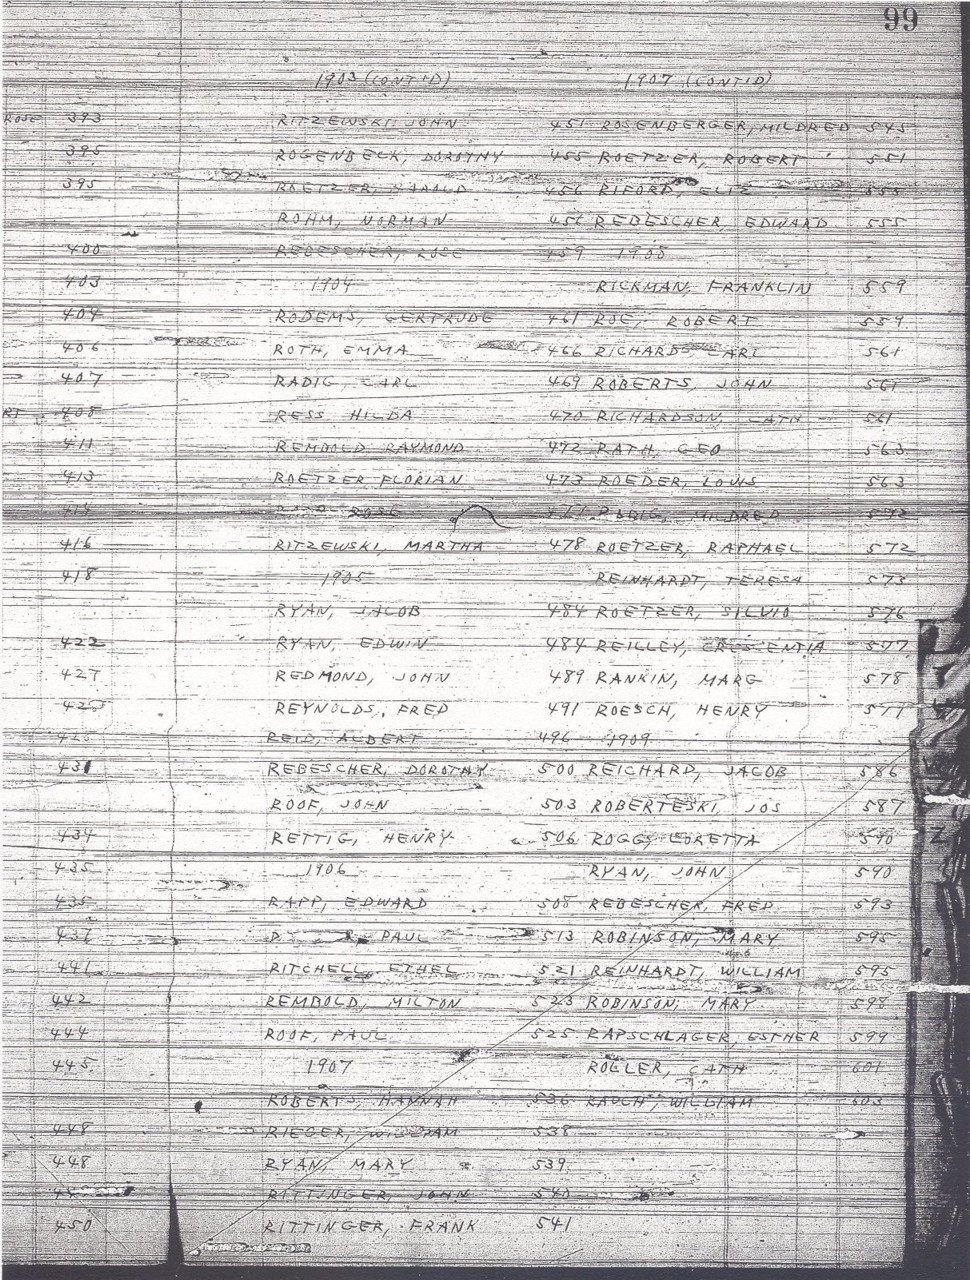 99
1903 (CONT'D) 1907 (CONT'D)
ROSE 393 RITZEWSKI JOHN 451 ROSENBERGER, MILDRED 545
395 ROGENBECK, DOROTHY 455 ROETZER, ROBERT 551
395 ROETZER, HAROLD 456 RIFORD, 555
ROHM, NORMAN 456 REBESCHER, EDWARD 555
400 REBESCHER, ROSE 459 1908
403 1904 RICKMAN, FRANKLIN 559
404 RODEMS, GERTRUDE 461 ROE, ROBERT 559
406 ROTH, EMMA 466 RICHARDS CARL 561
407 RADIG, CARL 469 ROBERTS, JOHN 561
RT 408 RESS HILDA 470 RICHARDSON, CATH 561
411 REMBOLD RAYMOND 472 RATH, GEO 563
413 ROETZER FLORIAN 473 ROEDER, LOUIS 563
414 ROSE RADIG, MILDRED 572
416 RITZEWSKI, MARTHA 478 ROETZER, RAPHAEL 572
418 1905 REINHARDT, TERESA 573
RYAN, JACOB 484 ROETZER, SILVIO 576
422 RYAN, EDWIN 484 REILLEY, CRESCENTIA 577
427 REDMOND, JOHN 489 RANKIN, MARG 578
REYNOLDS, FRED 491 ROESCH, HENRY
REID, ALBERT 496 1909
431 REBESCHER, DOROTHY 500 REICHARD, JACOB 586
ROOF, JOHN 503 ROBERTESKI, JOS 587
434 RETTIG, HENRY 506 ROGG, LORETTA 590
435 1906 RYAN, JOHN 590
435 RAPP, EDWARD 508 REBESCHER, FRED 593
437 PAUL 513 ROBINSON, MARY 595
441 RITCHELL, ETHEL 521 REINHARDT, WILLIAM 595
442 REMBOLD, MILTON 523 ROBINSON, MARY 598
444 ROOF, PAUL 525 RAPSCHLAGER, ESTHER 599
445 1907 ROLLER, CATH 601
ROBERTS, HANNAH 536 RAUCH, WILLIAM 603
448 RIEGER, WILLIAM 538
448 RYAN, MARY 539
RITTINGER, JOHN 540
450 RITTINGER, FRANK 541
Z